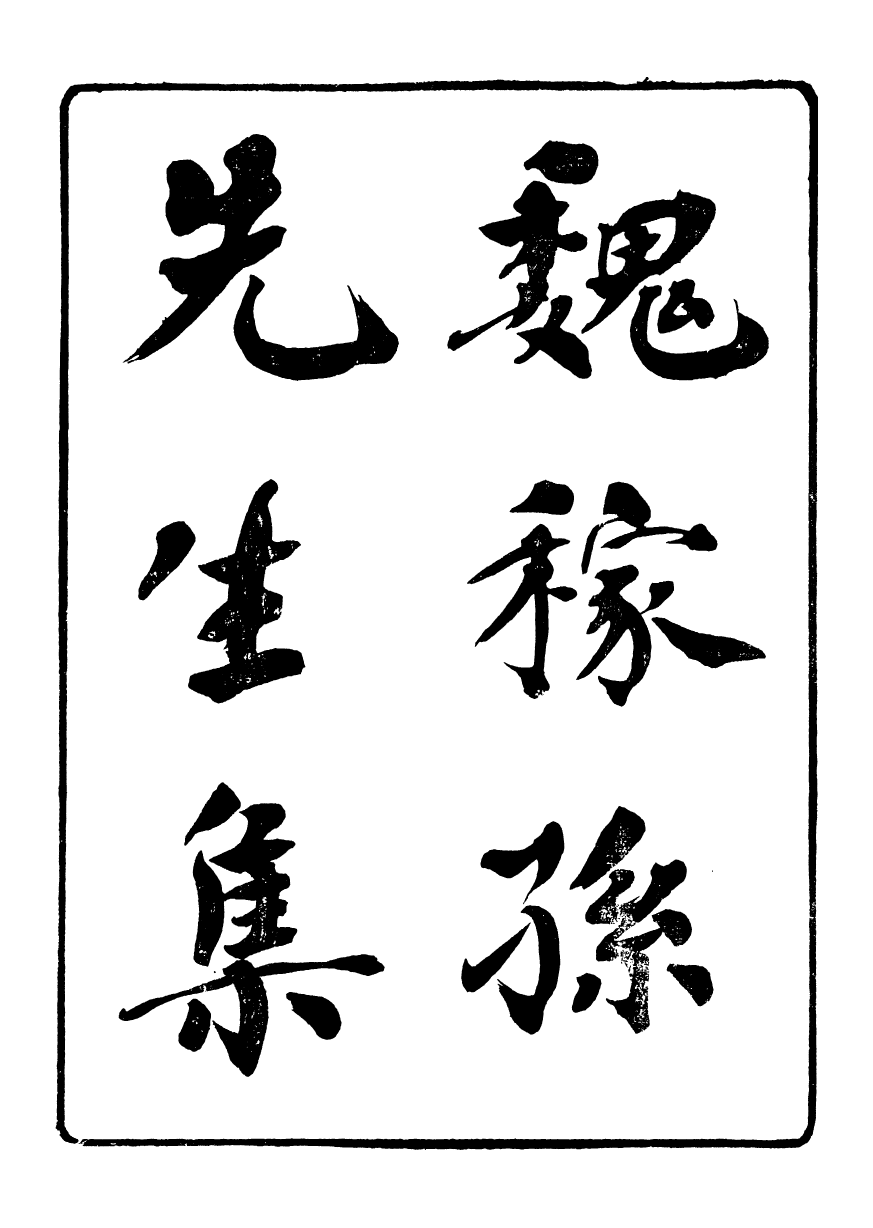 魏稼孫
先生集